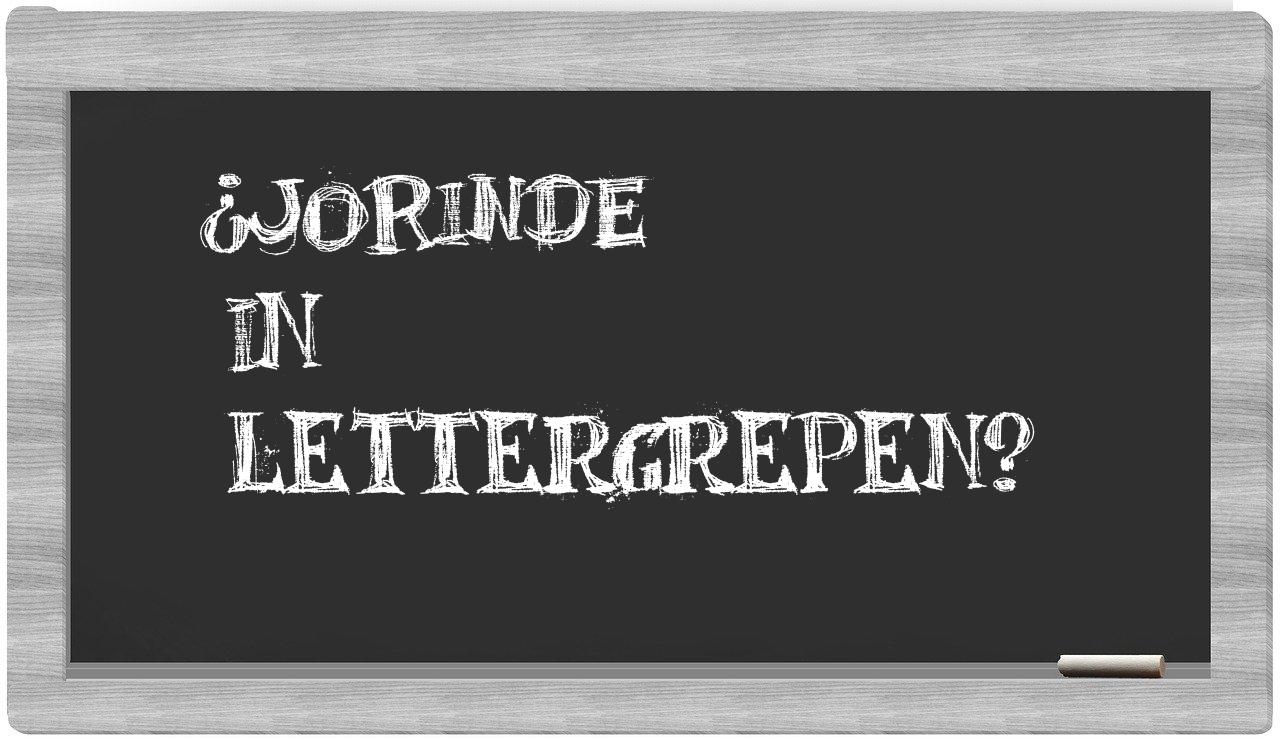 ¿JORINDE
IN
LETTERGREPEN?